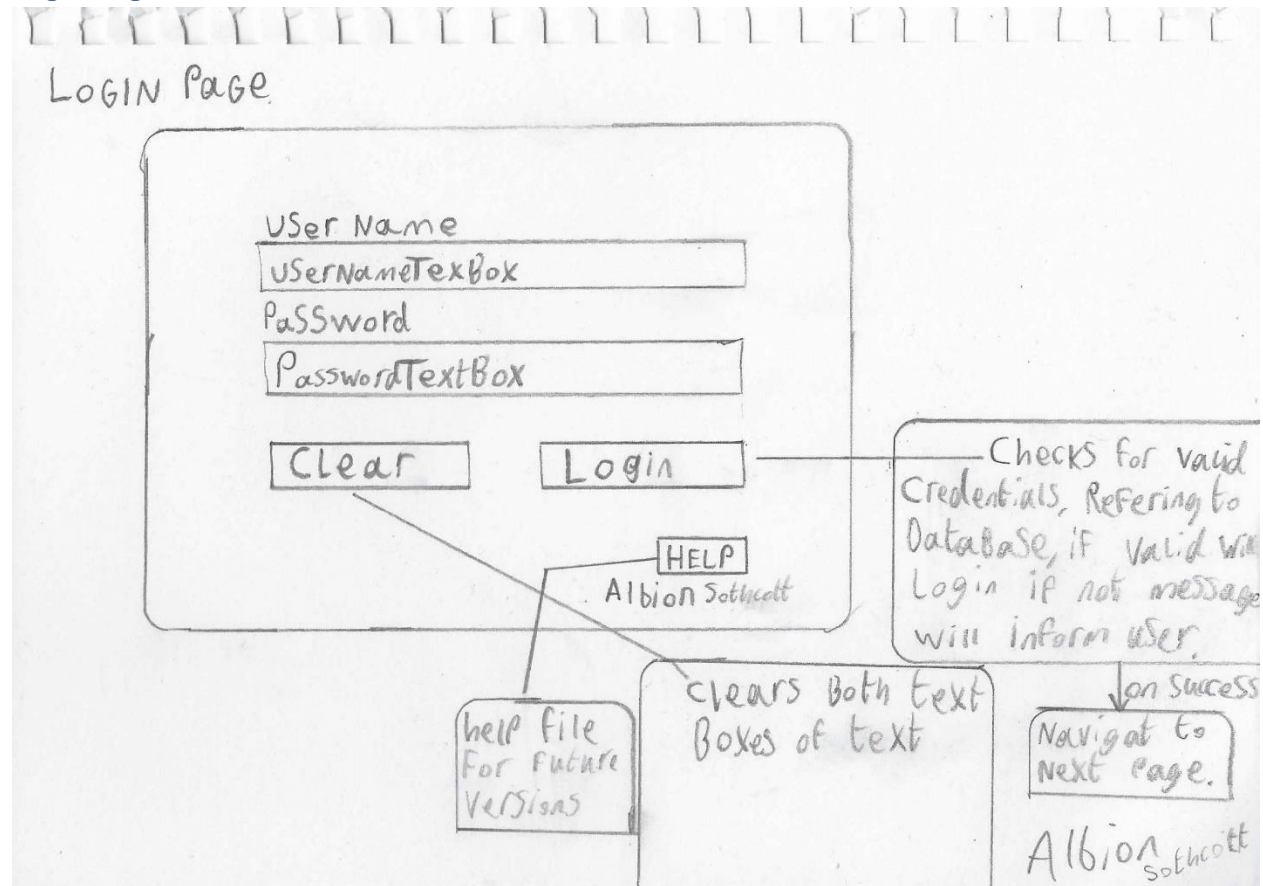 LOGIN PaGe
USer Name
uSerNameTexBox
PaSSword
PasswordTextBox
Clear
Login
HELP
Albion Sothcott
Checks for valid
Credentials, Refering to
DataBaSe, if valid will
Login if not message
will inform uSer.
on Success
Navigat to
Next Page.
Clears Both text
Boxes of text
help file
For Future
Versions
Albion Sothcott